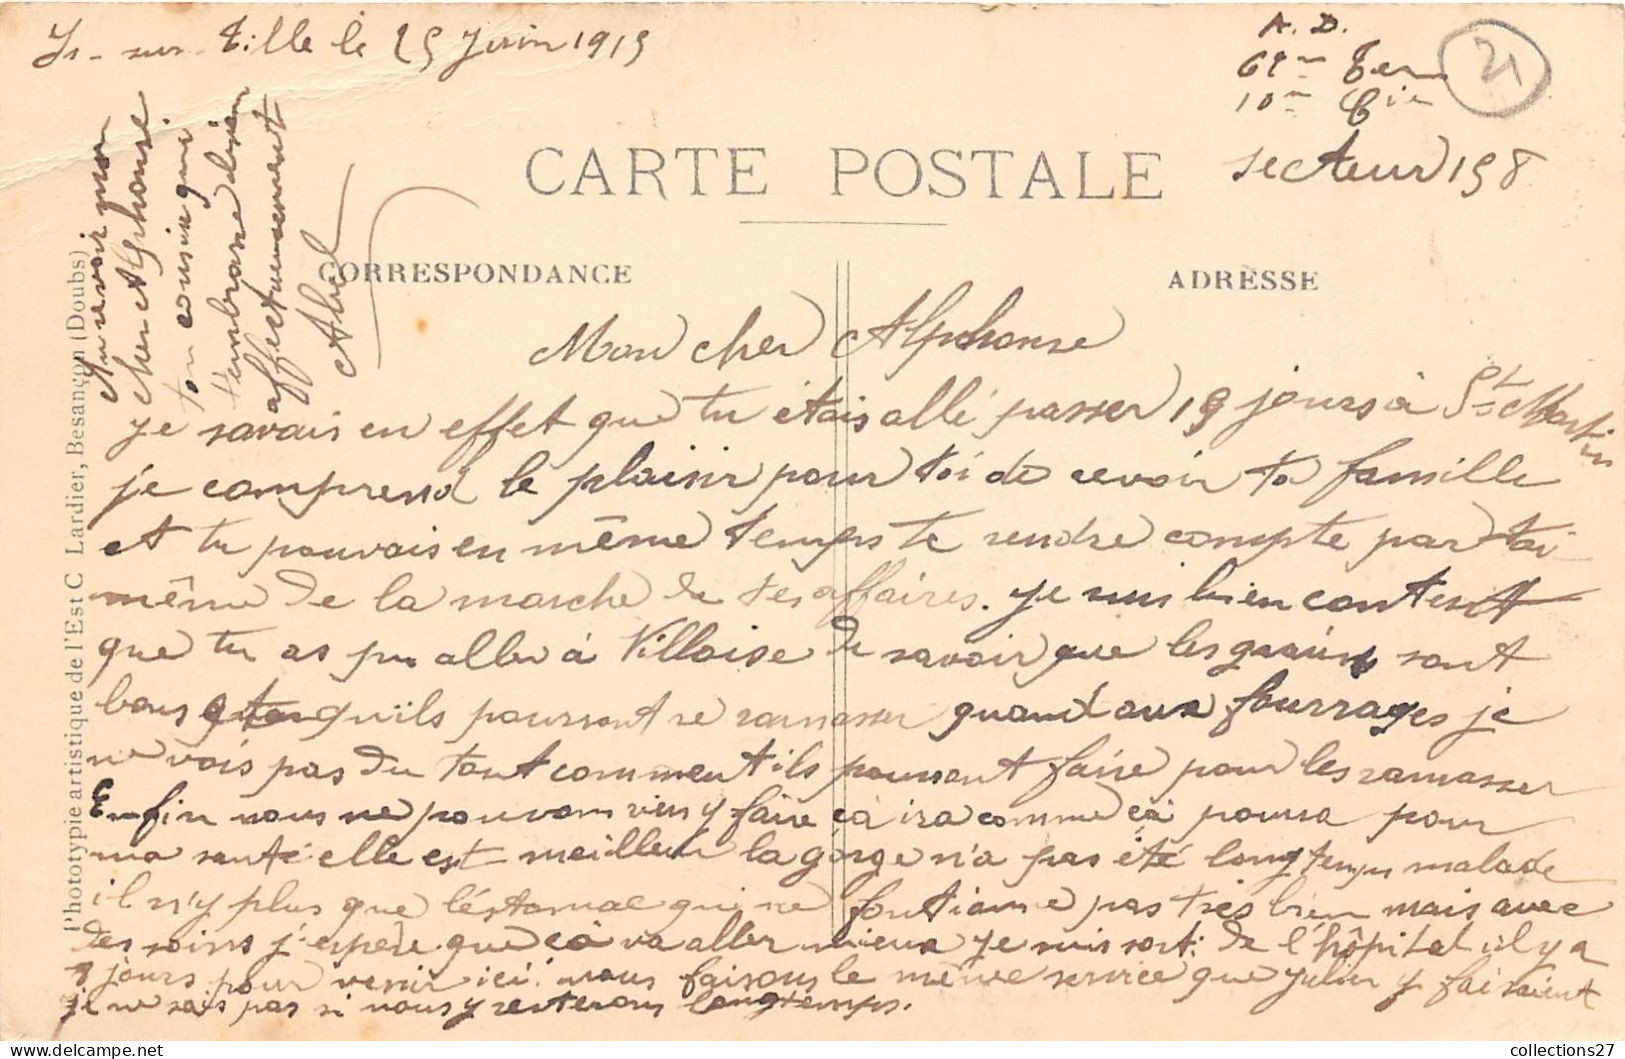 Is-sur-Tille le 25 Juin 1915
A. D.
61em Ter
10em Cie
secteur 158
21
CARTE POSTALE
CORRESPONDANCE
ADRESSE
Mon cher Alphonse
je savais en effet que tu étais allé passer 15 jours à St Martin
je comprend le plaisir pour toi de revoir ta famille
et tu pouvais en même temps te rendre compte par toi
même de la marche de tes affaires. je suis bien content
que tu as pu aller à Villaise de savoir que les grains sont
bons qu'ils pourront se ramasser quand aux fourrages je
ne vois pas du tout comment ils pourront faire pour les ramasser
Enfin nous ne pouvons rien y faire çà ira comme çà pourra pour
ma santé elle est meilleur la gorge n'a pas été longtemps malade
il n'y plus que l'éstomac qui ne fontionne pas très bien mais avec
des soins j'espère que çà va aller mieux je suis sorti de l'hôpital il y a
jours pour venir ici nous faisons le même service que y faisaient
je ne sais pas si nous y resterons longtemps.
Au revoir mon
cher Alphonse
ton cousin qui
t'embrasse bien
affectueusement
Abel
Phototypie artistique de l'Est C Lardier, Besançon (Doubs)
collections27